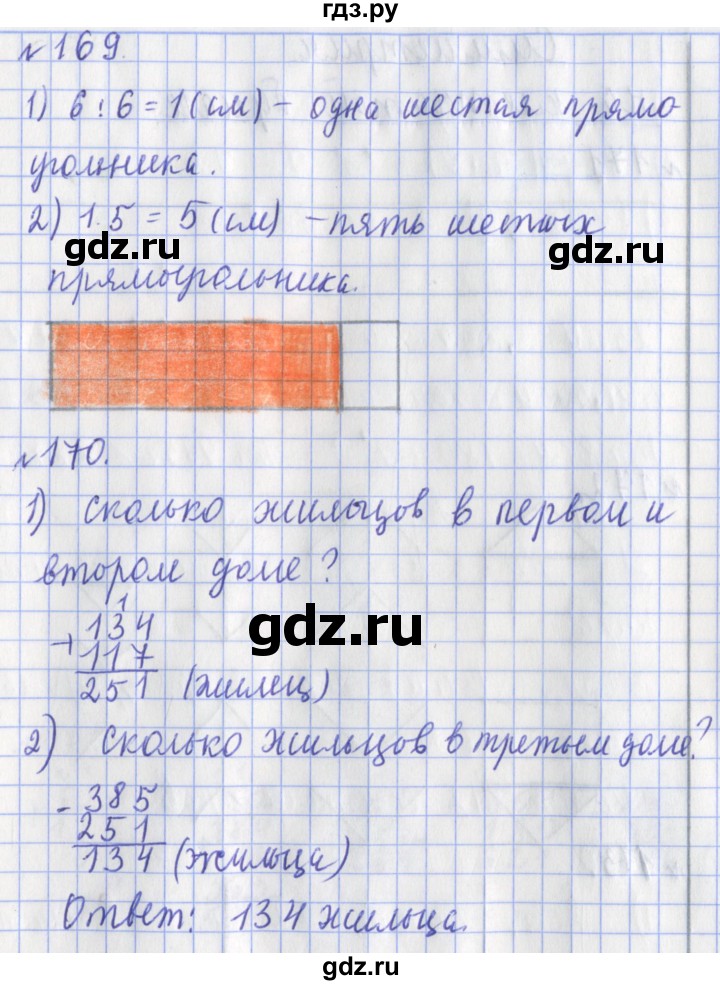 гдз.ру
№169.
1) 6 : 6 = 1 (см) – одна шестая прямо-
угольника.
2) 1·5 = 5 (см) – пять шестых
gdz.ru
gdz.ru
прямоугольника.
№170.
1) Сколько жильцов в первом и
втором доме?
1
134
gdz.ru
+
117
251 (жилец)
2) Сколько жильцов в третьем доме?
- 385
251
134 (жильца)
Ответ: 134 жильца.
gdz.ru